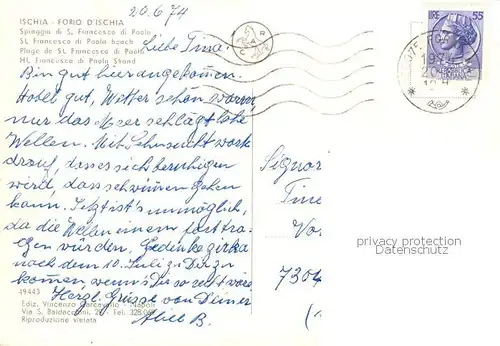 20.6.74
ISCHIA - FORIO D'ISCHIA
Spiaggia di S. Francesco di Paola
St. Francesco di Paola beach
Plage de St. Francesco di Paola
Hl. Francesco di Paola Strand
LIRE 55
Liebe Tina!
Bin gut hier angekommen.
Hotel gut, Wetter schön warm
nur das Meer schlägt hohe
Wellen. Mit Sehnsucht warte
drauf, dass es sich beruhigen
wird, dass schwimmen gehen
kann. Jetzt ist's unmöglich,
da die Wellen einem fasttra-
gen würden. Gedenke zirka
nach dem 10. Juli zu Dir zu
kommen, wenn's Dir so recht wäre
Herzl. Grüsse von Deiner
Alice B.
Signor
Tine
7304
privacy protection
49443
Ediz. Vincenzo Carcavallo - Napoli
Via S. Baldacchini, 29 - Tel. 328.06
Riproduzione vietata